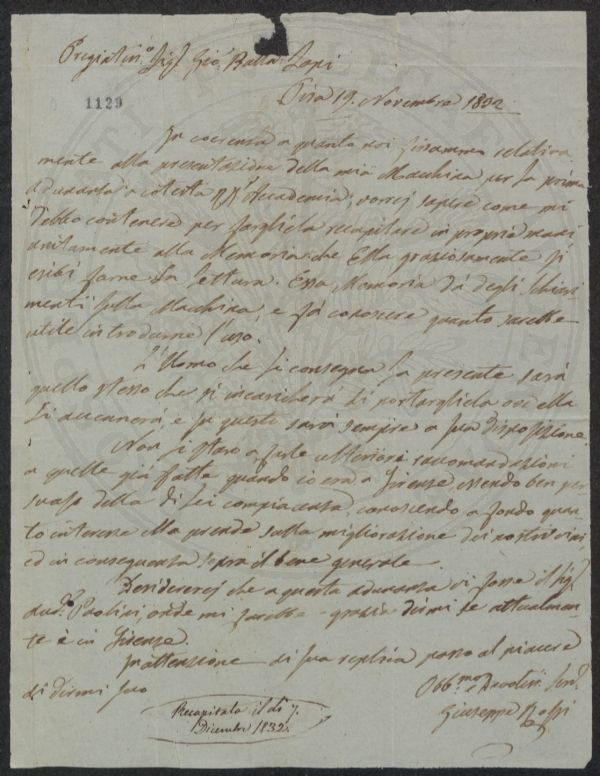 Pregiatis.º Sig.r Gio. Batta. Lapi
1129
Pisa 19. Novembre 1832
In coerenza a quanto noi fissammo relativa
mente alla presentazione della mia Macchina per la prima
adunanza a cotesta Accademia, vorrei sapere come mi
debbo contenere per fargliela recapitare in proprie mani
unitamente alla Memoria che Ella graziosamente si
esibì farne la lettura. Essa Memoria dà degli schiari
menti sulla Macchina, e fà conoscere quanto sarebbe
utile introdurne l'uso.
L'Uomo che Le consegna la presente sarà
quello stesso che si incaricherà di portargliela ove ella
Le accennerà, e questi sarà sempre a sua disposizione.
Non Le starò a farle ulteriori raccomandazioni
a quelle già fatte quando io era a Firenze essendo ben per
suaso della di Lei compiacenza, conoscendo a fondo quan
to interesse Ella prende sulla migliorazione dei nostri vini,
ed in conseguenza sopra il bene generale.
Desidererei che a questa adunanza vi fosse il Sig.r
Paolini, onde mi farebbe grazia dirmi se attualmen
te è in Firenze.
In attenzione di sua replica passo al piacere
di dirmi suo
Obb.mo Devotis. Serv.
Giuseppe Rossi
Recapitata il dì 7.
Dicembre 1832.